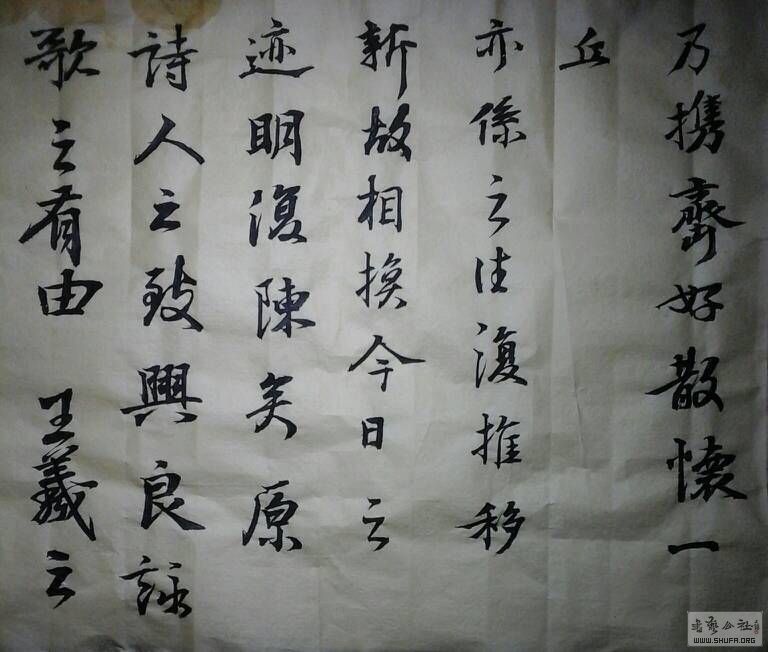 乃携齊好散懷一
丘
亦係之往復推移
新故相換今日之
迹明復陳矣原
詩人之致興良詠
歌之有由 王羲之
书艺公社
WWW.SHUFA.ORG